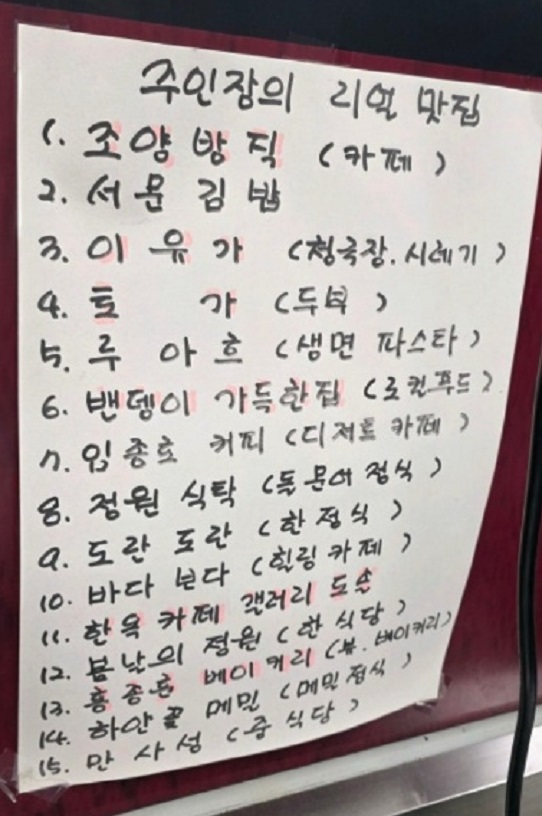 주인장의 리얼 맛집
1. 조양방직 (카페)
2. 서문김밥
3. 이유가 (청국장. 시레기)
4. 토가 (두부)
5. 루아흐 (생면 파스타)
6. 밴뎅이 가득한집 (로컨푸드)
7. 임종호 커피 (디저트 카페)
8. 정원 식탁 (돌문어 정식)
9. 도란 도란 (한정식)
10. 바다 보다 (힐링카페)
11. 한옥 카페 갤러리 도솔
12. 봄날의 정원 (한식당)
13. 홍종흔 베이커리 (뷰. 베이커리)
14. 하얀꽃 메밀 (메밀정식)
15. 만사성 (중식당)